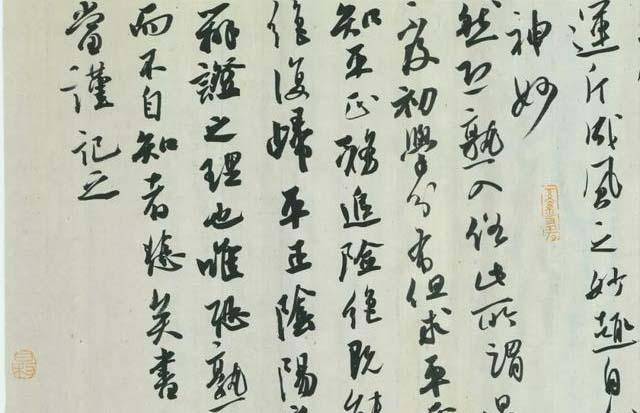 運斤成風之妙趣自
神妙
然恐熟入俗此所謂
初學分布但求平
知平正務追險絕既
復歸平正陰陽
辯證之理也唯恐熟
而不自知者悲矣書
當謹記之